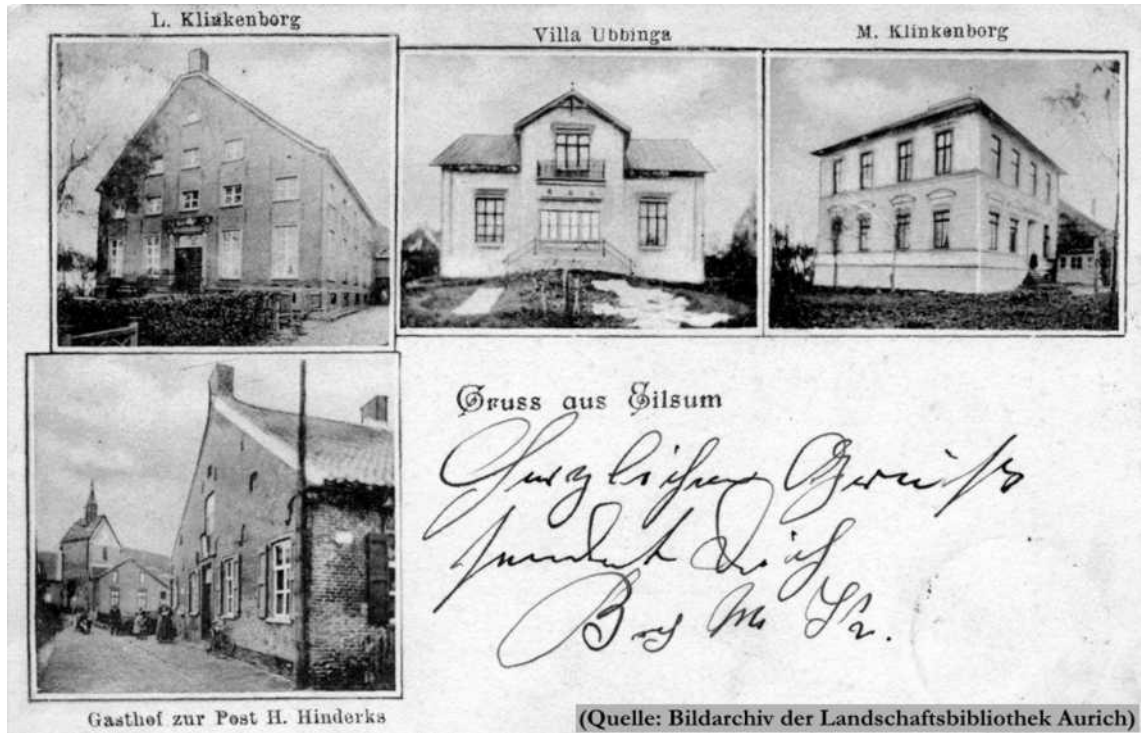 L. Klinkenborg
Villa Ubbinga
M. Klinkenborg
Gruss aus Eilsum
Herzlichen Gruß
sendet Dich
Gasthof zur Post H. Hinderks
(Quelle: Bildarchiv der Landschaftsbibliothek Aurich)